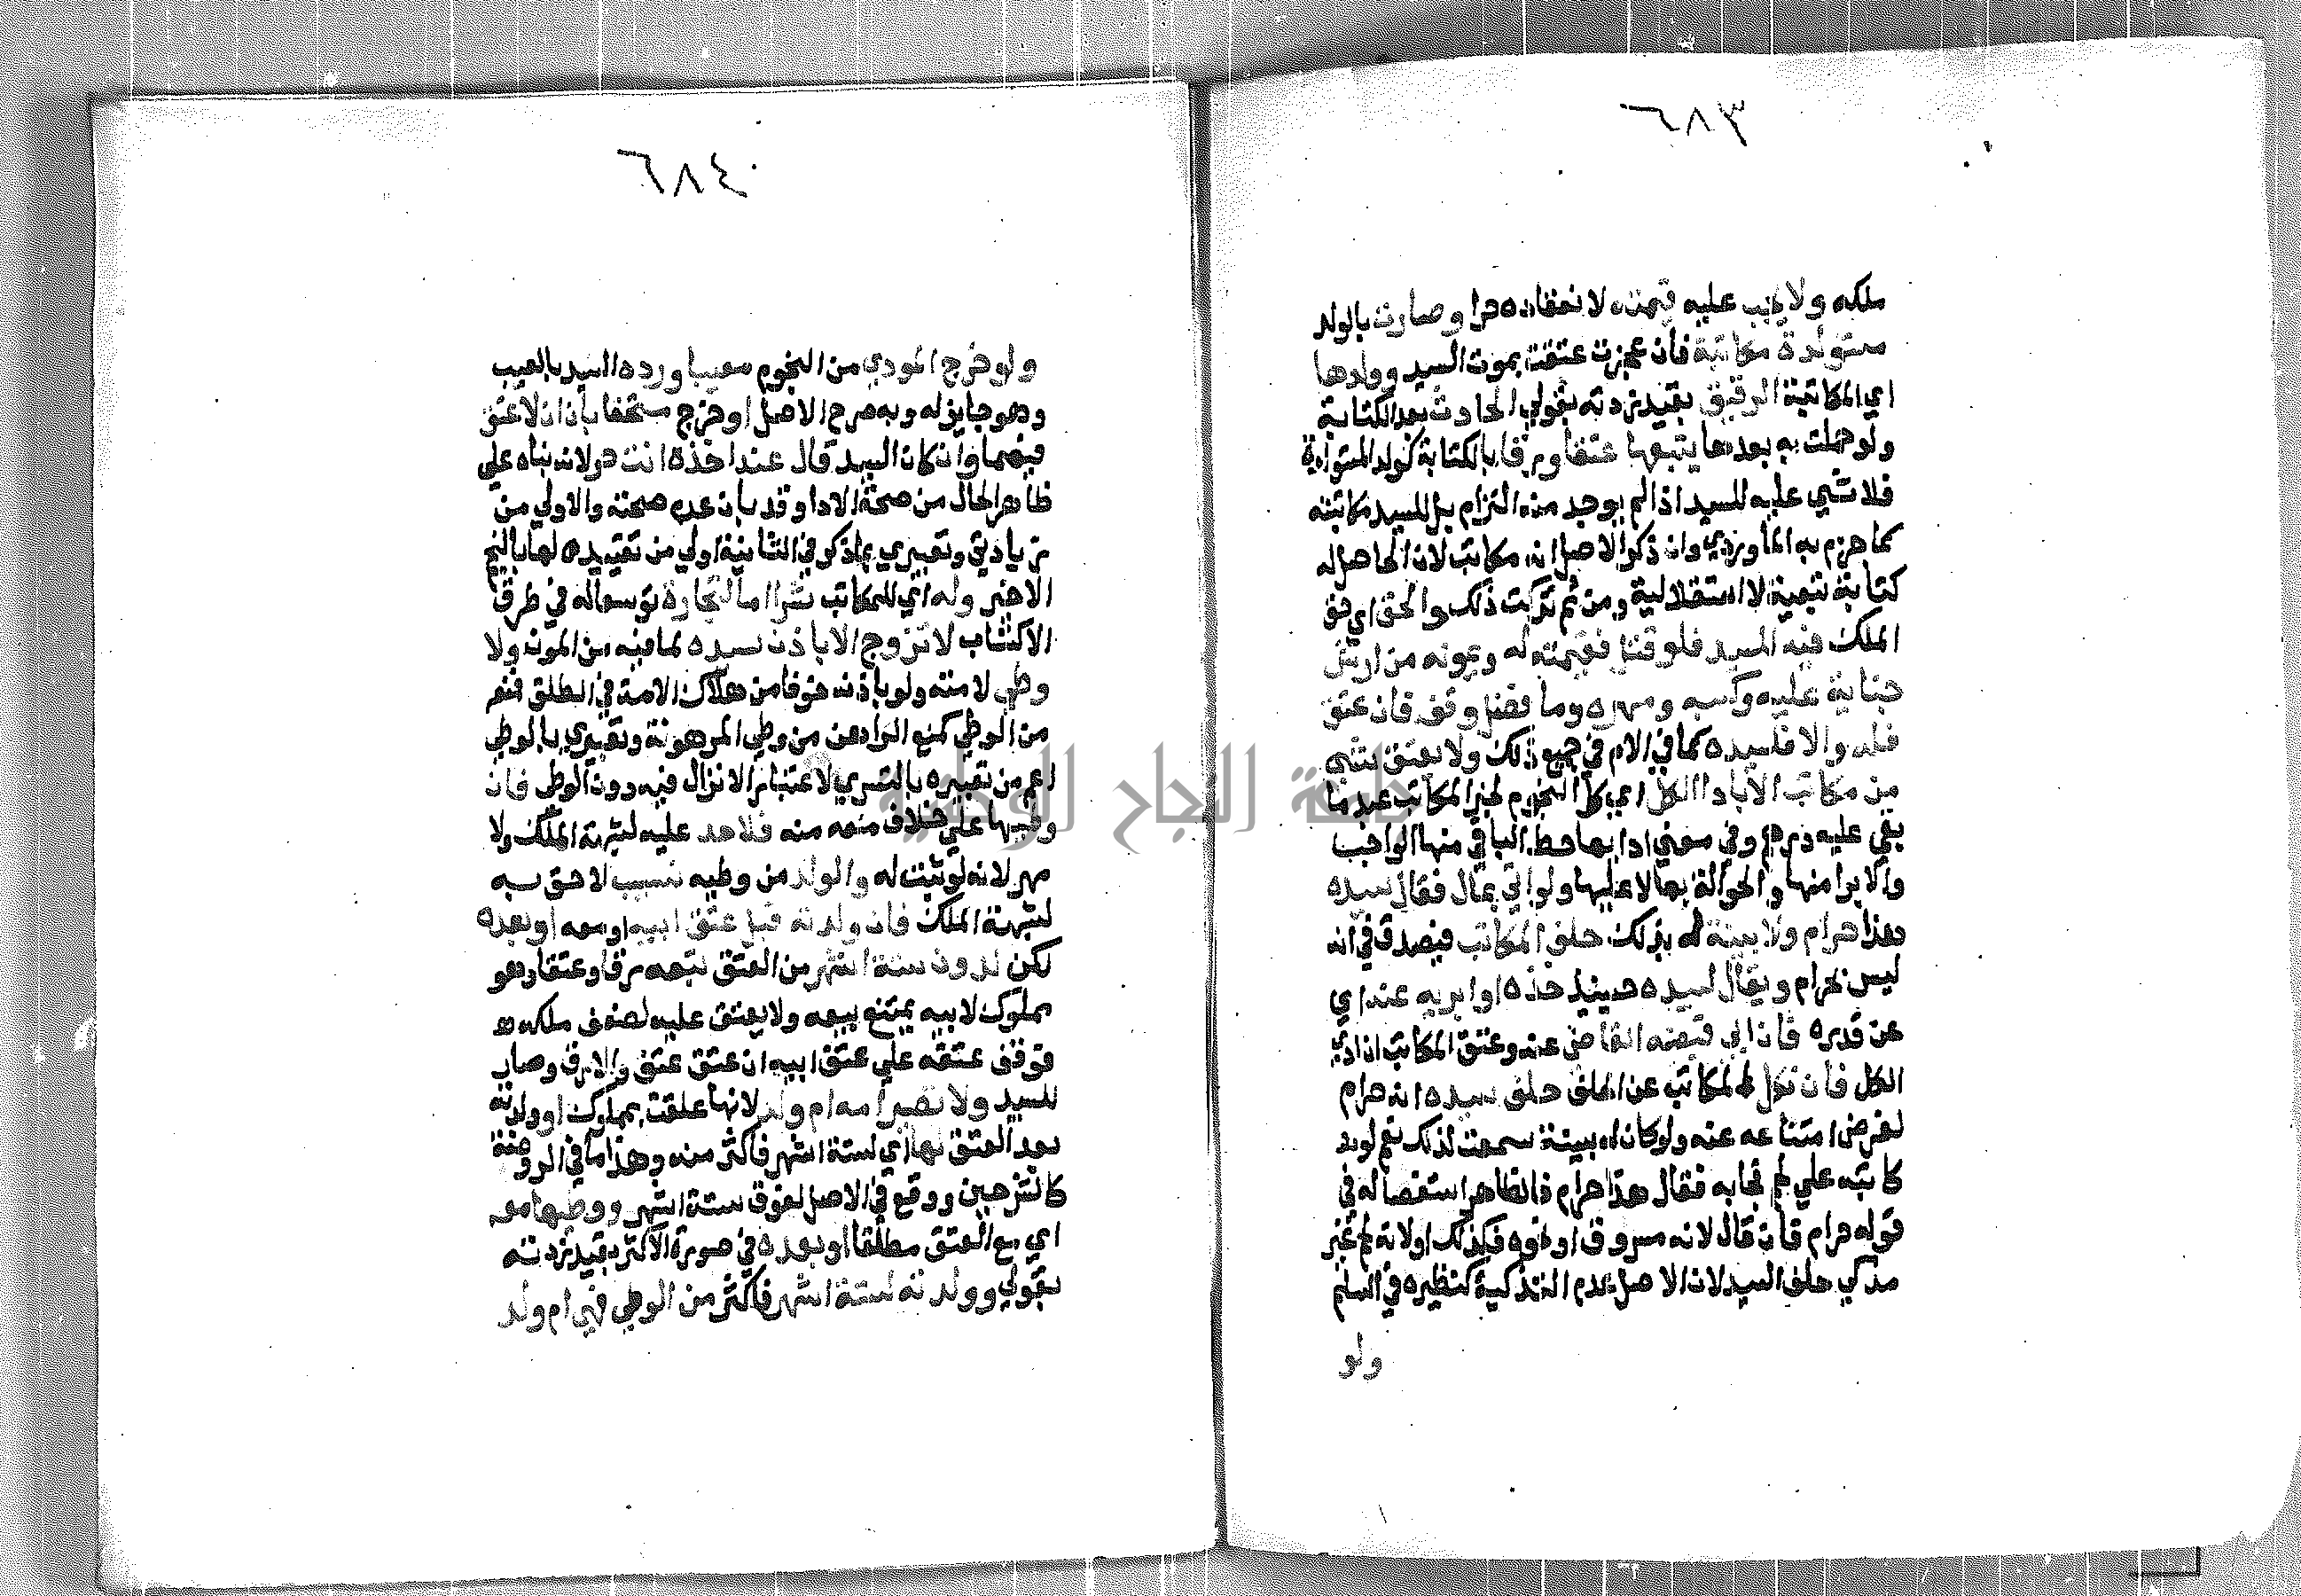 ٦٨٣
ملكه ولا يجب عليه قيمته لانعقاده حرا وصارت بالولد
مستولدة مكاتبة فان عجزت عتقت بموت السيد وولدها
اي المكاتبة الرقيق بقيد زدته بقولي الحادث بعد الكتابة
ولو حملت به بعدها يتبعها عتقا ورقا بالكتابة كولد المستولدة
فلا شي عليه للسيد اذ لم يوجد منه التزام بل للسيد مكاتبته
كما جزم به الماوردي وان ذكر الاصل انه مكاتب لان الحاصل له
كتابة تبعية لا استقلالية ومن ثم تركت ذلك والحق اي حق
الملك فيه للسيد فلو قتل فقيمته له ويمونه من ارش
جناية عليه وكسبه ومهره وما فضل وقف فان عتق
فله والا فلسيده كما في الام في جميع ذلك ولا يعتق شي
من مكاتب الا باداء الكل اي كل النجوم لخبر المكاتب عبد ما
بقي عليه درهم وفي معني ادايها حط الباقي منها الواجب
والابرا منها والحوالة بها لا عليها ولو اتي بمال فقال سيده
هذا حرام ولا بينة له بذلك حلف المكاتب فيصدق في انه
ليس بحرام ويقال لسيده حينيذ خذه او ابريه عنه اي
عن قدره فان ابي قبضه القاضي عنه وعتق المكاتب ان ادي
الكل فان نكل المكاتب عن الحلف حلف سيده انه حرام
لغرض امتناعه عنه ولو كان له بينة سمعت لذلك نعم لو
كاتبه علي لحم فجا به فقال هذا حرام فالظاهر استفصاله في
قوله حرام فان قال لانه مسروق او نحوه فكذلك او لانه لحم غير
مذكي حلف السيد لان الاصل عدم التذكية كنظيره في السلم
ولو
٦٨٤
ولو خرج المودي من النجوم معيبا ورده السيد بالعيب
وهو جايز له وبه صرح الاصل او خرج مستحقا بان ان لا عتق
فيهما وان كان السيد قال عند اخذه انت حر لانه بناه علي
ظاهر الحال من صحة الادا وقد بان عدم صحته والاولي من
زيادتي وتعبيري بما ذكر في الثانية اولي من تقييده لها بالنجم
الاخير وله اي للمكاتب شرا اما لتجارة توسعا له في طرق
الاكتساب لا تزوج الا باذن سيده لما فيه من المونه ولا
وطي لامته ولو باذنه خوفا من هلاك الامة في الطلق فمنعه
من الوطي كمنع الراهن من وطي المرهونة وتعبيري بالوطي
اعم من تعبيره بالتسري لاعتبار الانزال فيه دون الوطي فان
وطيها علي خلاف منعه منه فلا حد عليه لشبهة الملك ولا
مهر لانه لو ثبت له والولد من وطيه نسيب لاحق به
لشبهة الملك فان ولدته قبل عتق ابيه او معه او بعده
لكن لدون ستة اشهر من العتق تبعه رقا وعتقا وهو
مملوك لابيه يمتنع بيعه ولا يعتق عليه لضعف ملكه
فوقف عتقه علي عتق ابيه ان عتق عتق والا رق وصار
للسيد ولا تصير امه ام ولد لانها علقت بمملوك او ولدته
بعد العتق لها اي لستة اشهر فاكثر منه وهذا ما في الروضة
كالشرحين ووقع في الاصل لفوق ستة اشهر ووطيها معه
اي مع العتق مطلقا او بعده في صورة الاكثر بقيد زدته
بقولي وولدته لستة اشهر فاكثر من الوطي فهي ام ولد
جامعة النجاح الوطنية